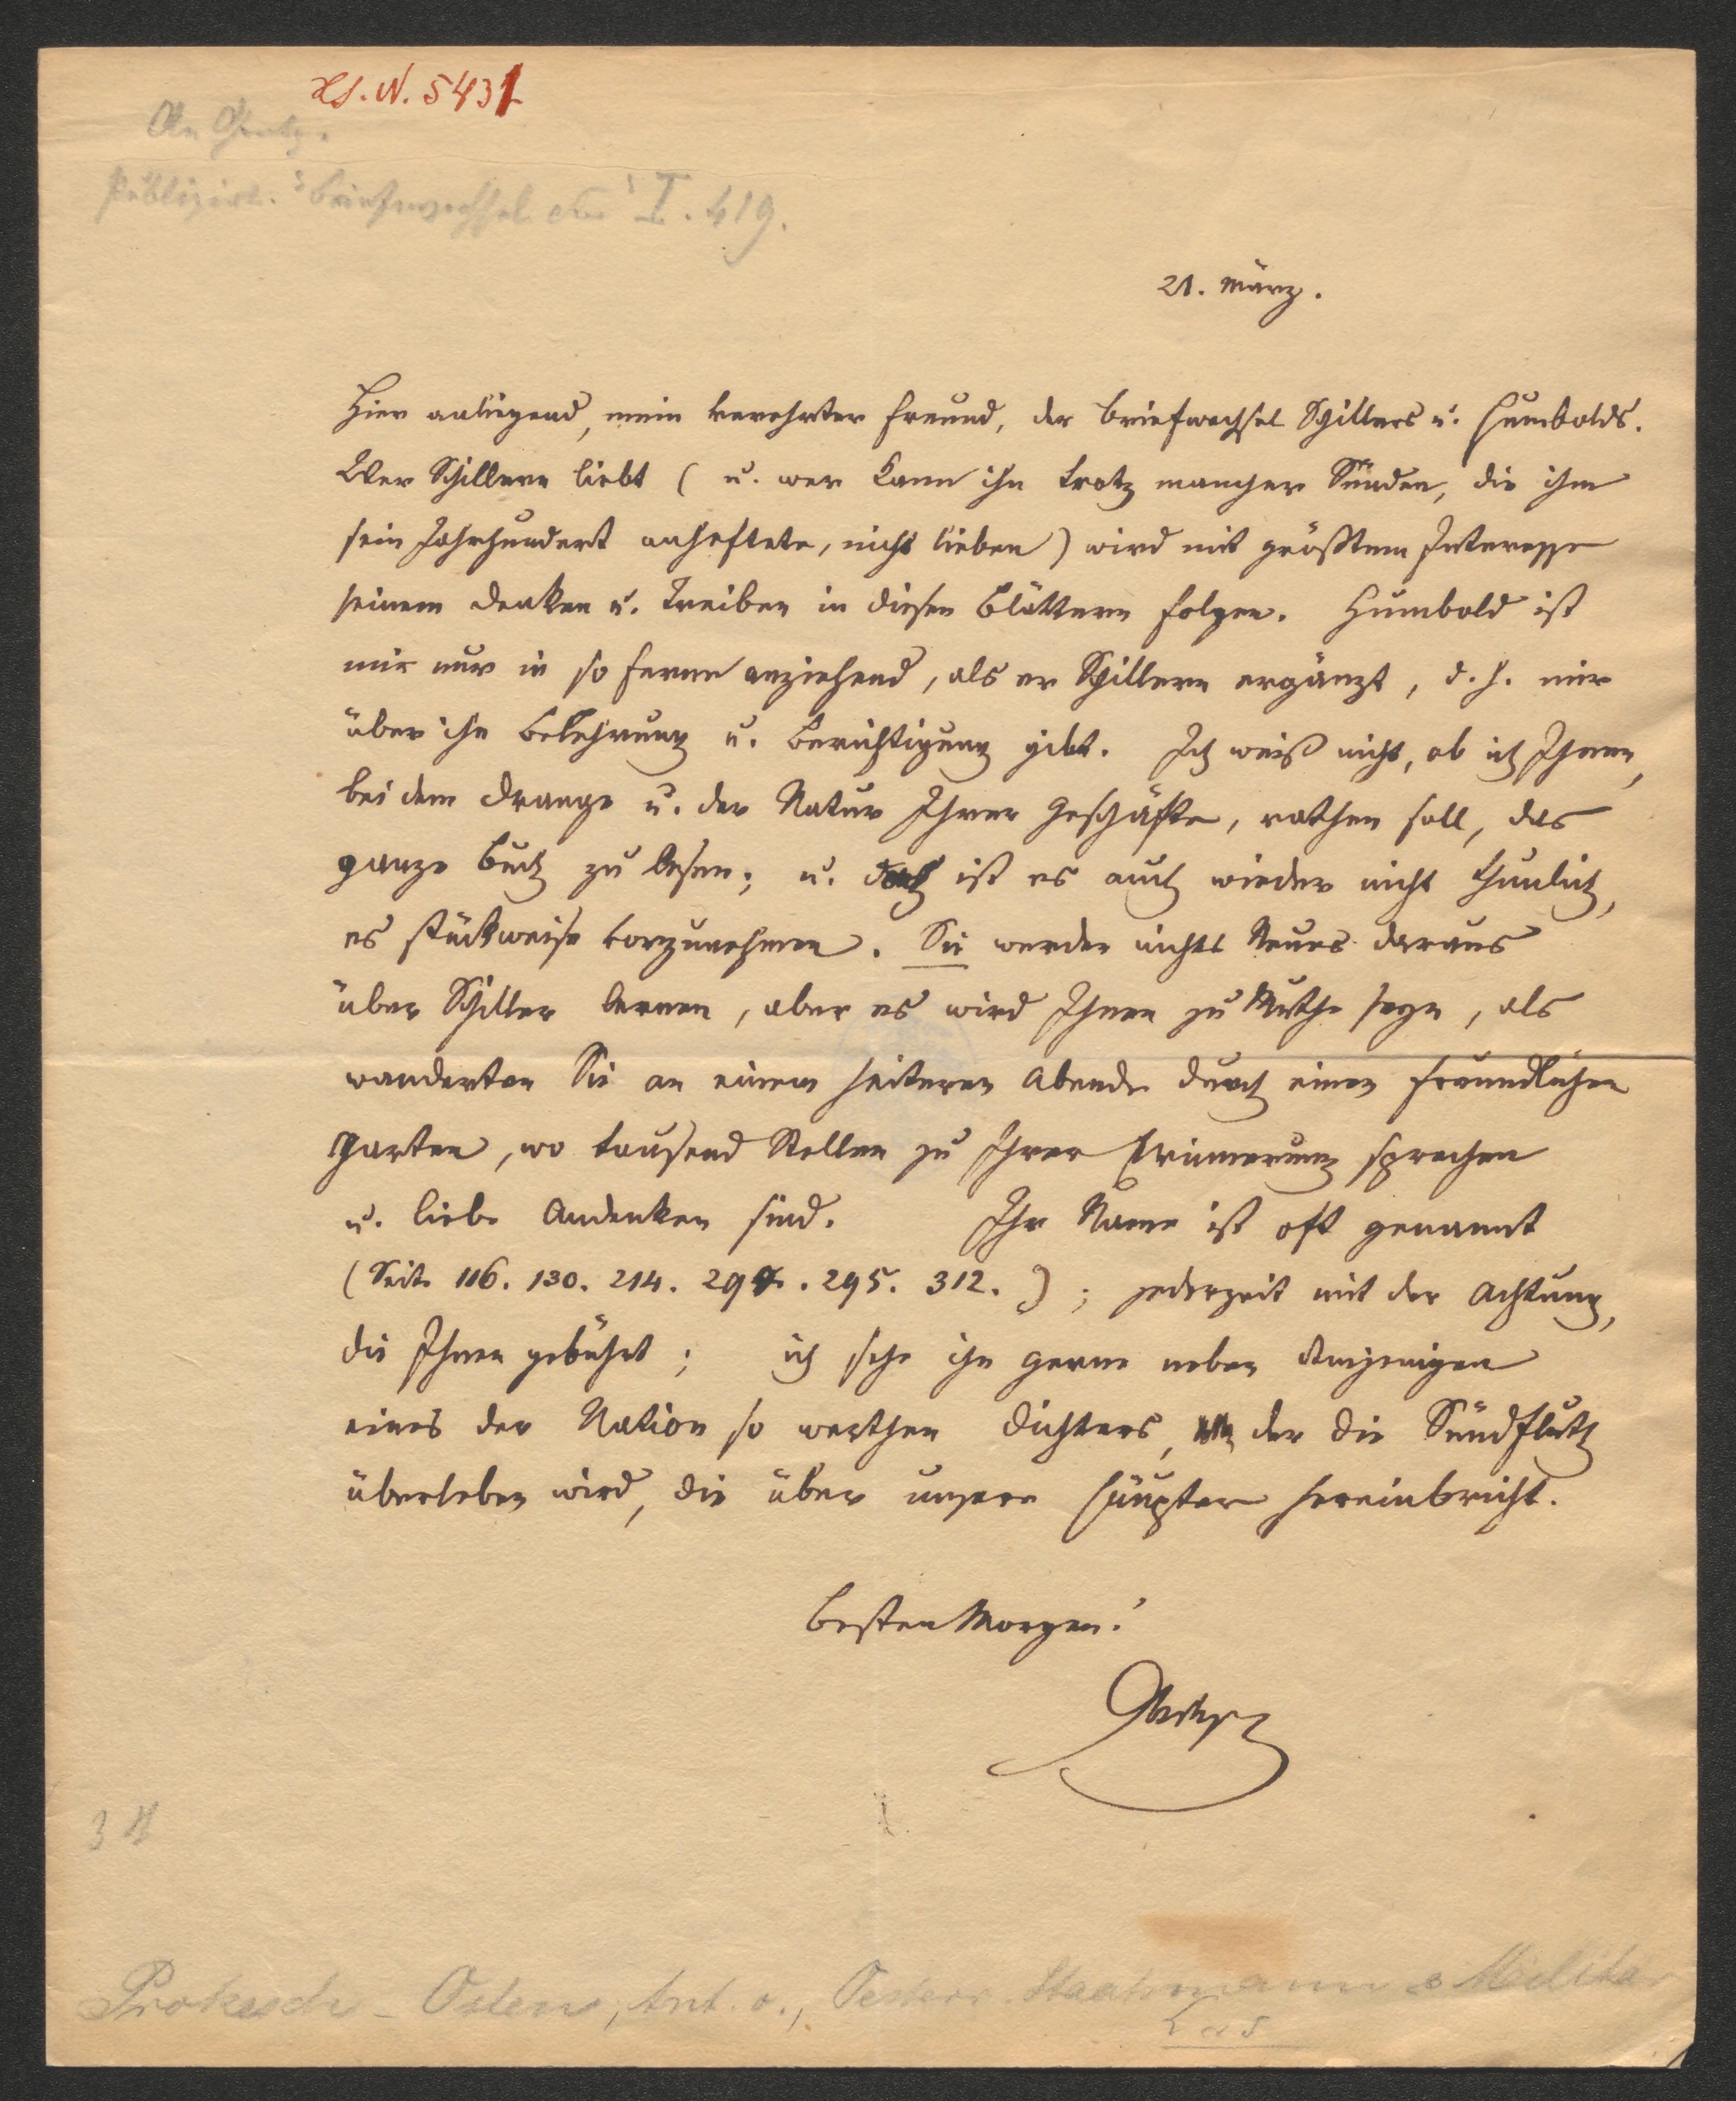 H.I.N. 5431
An Gentz.
Publizirt. "Briefwechsel I. 419.
21. März.
Hier anliegend, mein verehrter Freund, der Briefwechsel Schillers u. Humbolds.
Wer Schillern liebt ( u. wer kann ihn trotz mancher Sünden, die ihm
sein Jahrhundert anheftete, nicht lieben ) wird mit größtem Interesse
seinem Denken u. Treiben in diesen Blättern folgen. Humbold ist
mir nur in so ferne anziehend, als er Schillern ergänzt, d. h. mir
über ihn Belehrung u. Berichtigung gibt. Ich weiß nicht, ob ich Ihnen,
bei dem Drange u. der Natur Ihrer Geschäfte, rathen soll, das
ganze Buch zu lesen; u. doch ist es auch wieder nicht thunlich,
es stückweise vorzunehmen. Sie werden nichts Neues daraus
über Schiller lernen, aber es wird Ihnen zu Muthe seyn, als
wanderten Sie an einem heiteren Abende durch einen freundlichen
Garten, wo tausend Stellen zu Ihrer Erinnerung sprechen
u. liebe Andenken sind. Ihr Name ist oft genannt
(Seite 116. 130. 214. 295. 312. ) ; jederzeit mit der Achtung,
die Ihnen gebührt ; ich sehe ihn gerne neben demjenigen
eines der Nation so werthen Dichters, der die Sündfluth
überleben wird, die über unsere Häupter hereinbricht.
Besten Morgen!
34
Prokesch-Osten, Ant. v., Oesterr. Staatsmann & Militär